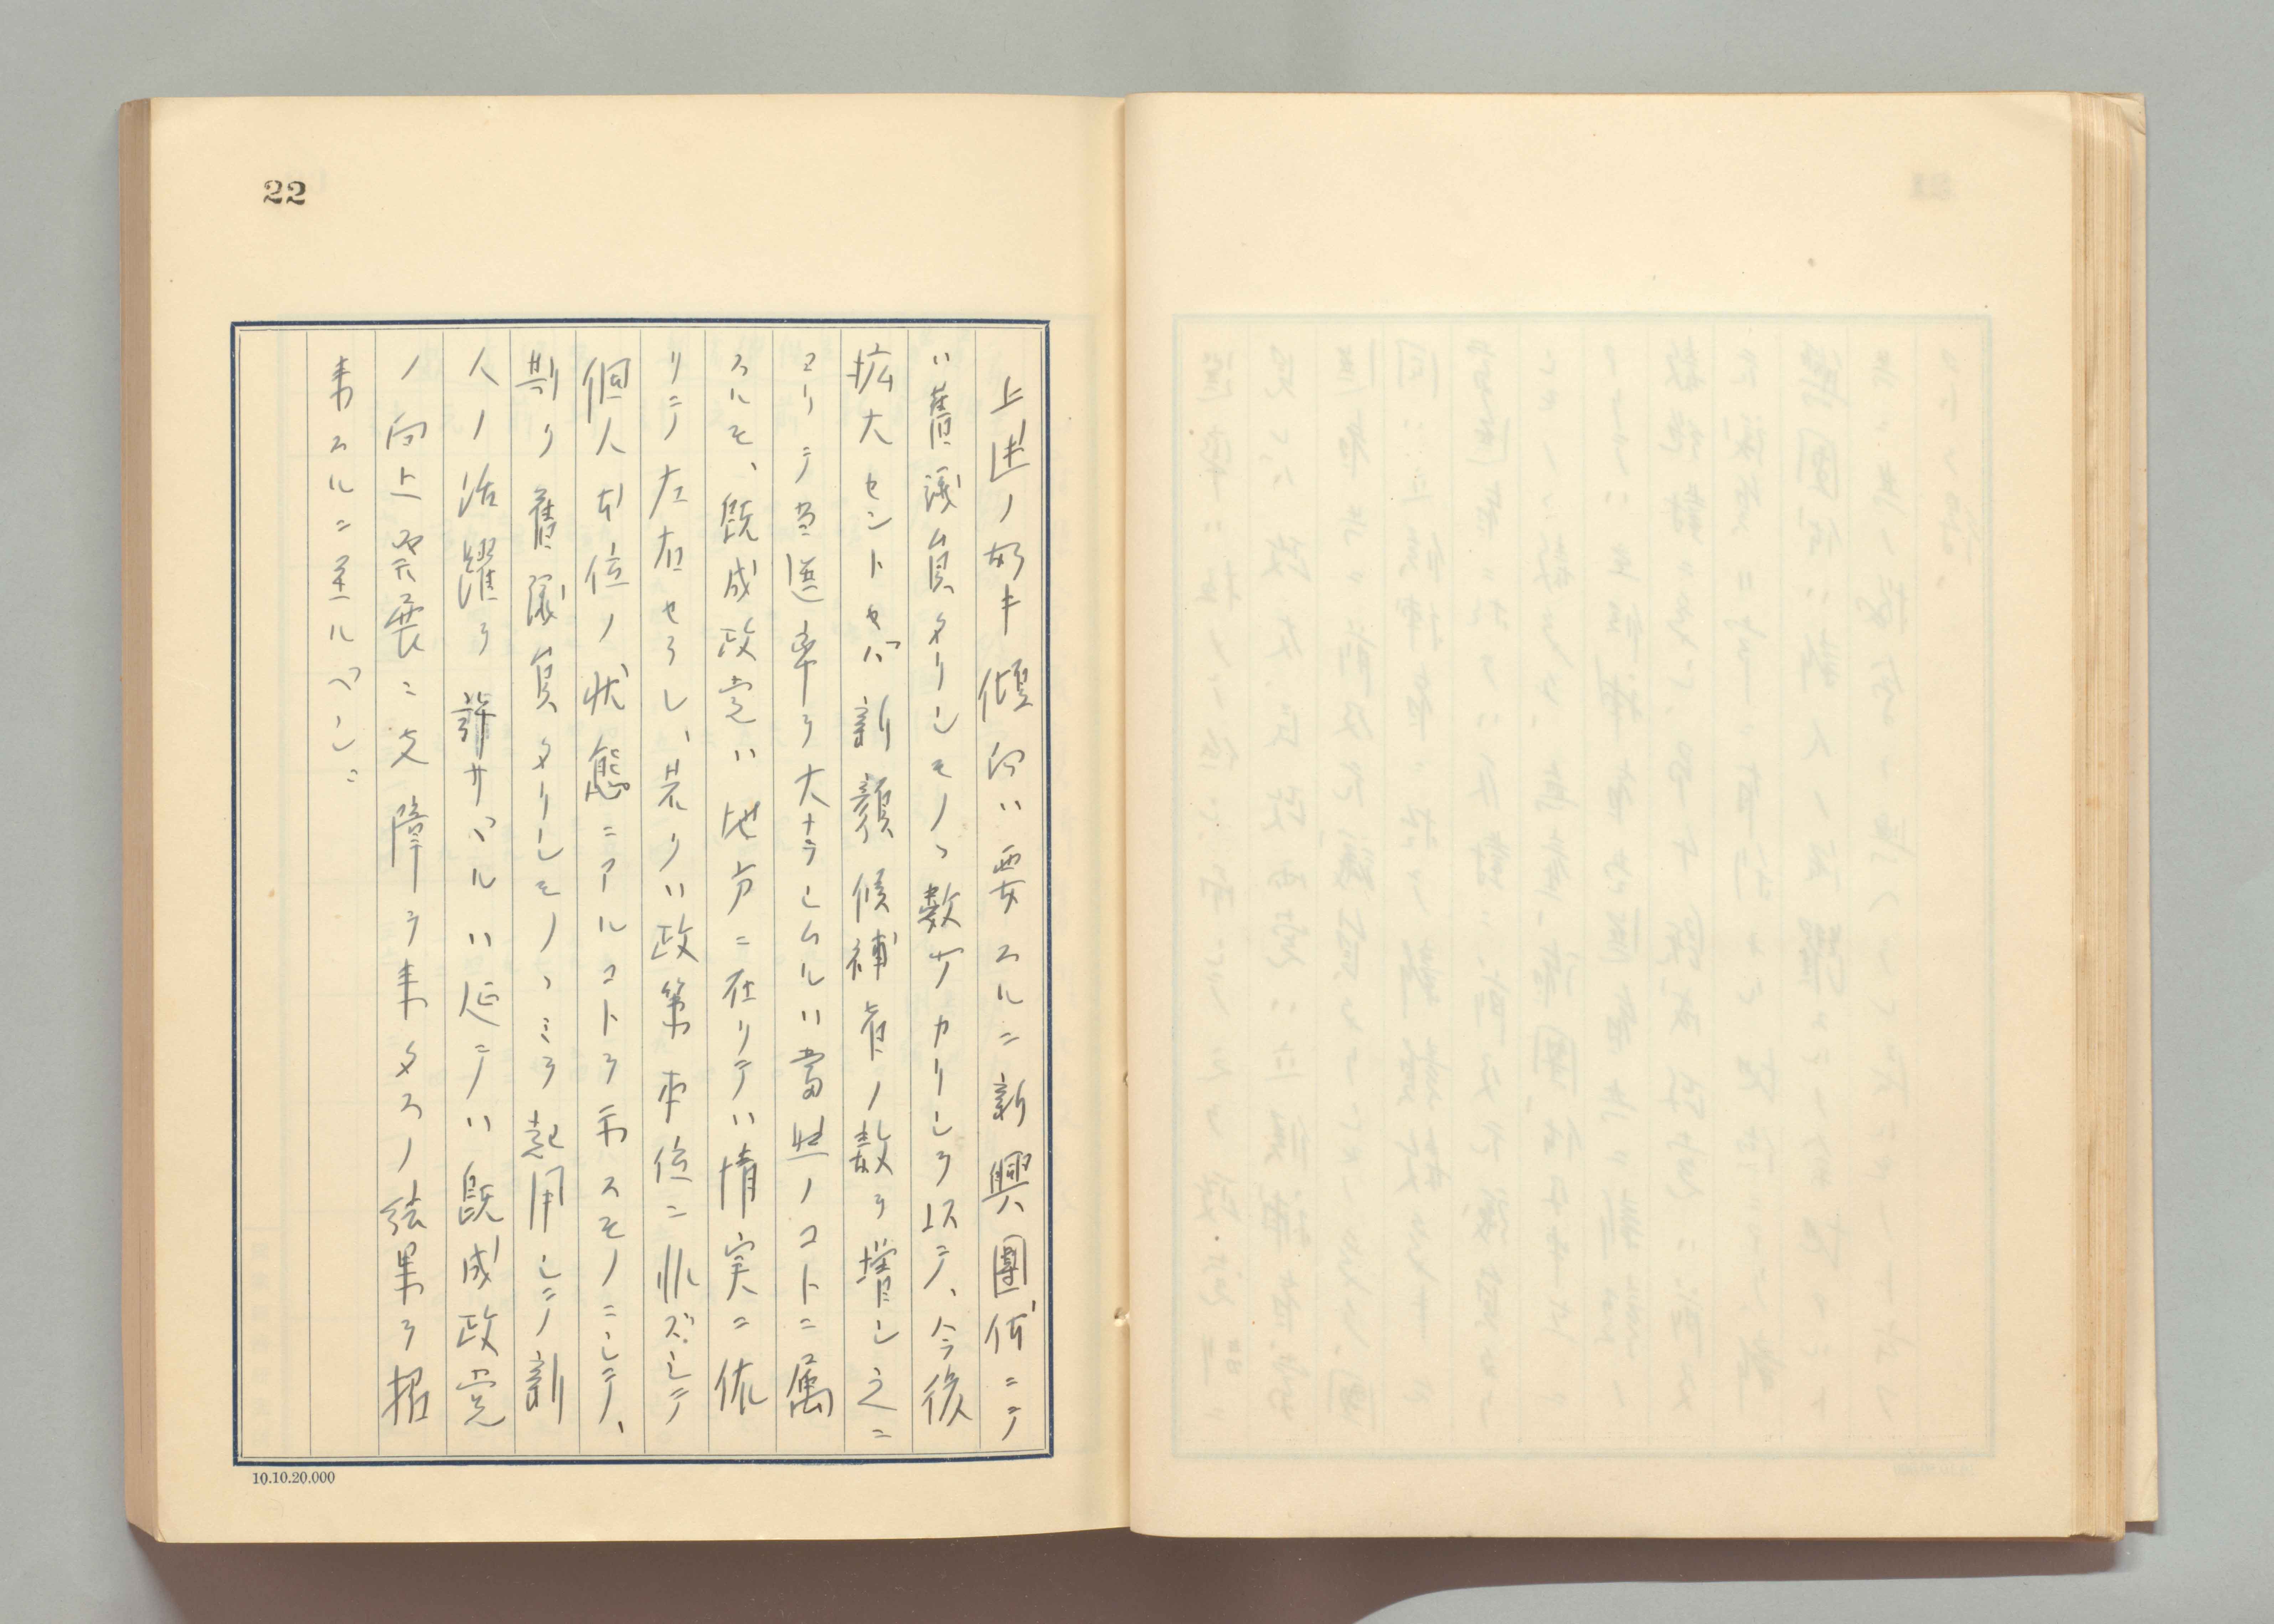 22
上述ノ如キ傾向ハ要スルニ新興團体ニテ
ハ舊議員タリシモノヽ数少カリシヲ以テ、今後
拡大セントセバ新顔候補者ノ数ヲ増シ之ニ
ヨリテ当選率ヲ大ナラシムルハ當然ノコトニ属
スルモ、既成政党ハ地方ニ在リテハ情実ニ依
リテ左右セラレ、若クハ政策本位ニ非ズシテ
個人本位ノ状態ニアルコトヲ示スモノニシテ、
斯ク舊議員タリシモノヽミヲ起用シテ新
人ノ活躍ヲ許サバルハ延テハ既成政党
ノ向上発展ニ支障ヲ来タスノ結果ヲ招
来スルニ至ルベシ。
10.10.20.000